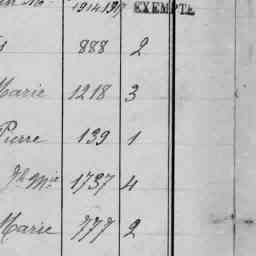 1914-191 EXEMPTE
888 2
Marie 1218 3
Pierre 139 1
Jh Mie 1737 4
Marie 777 2